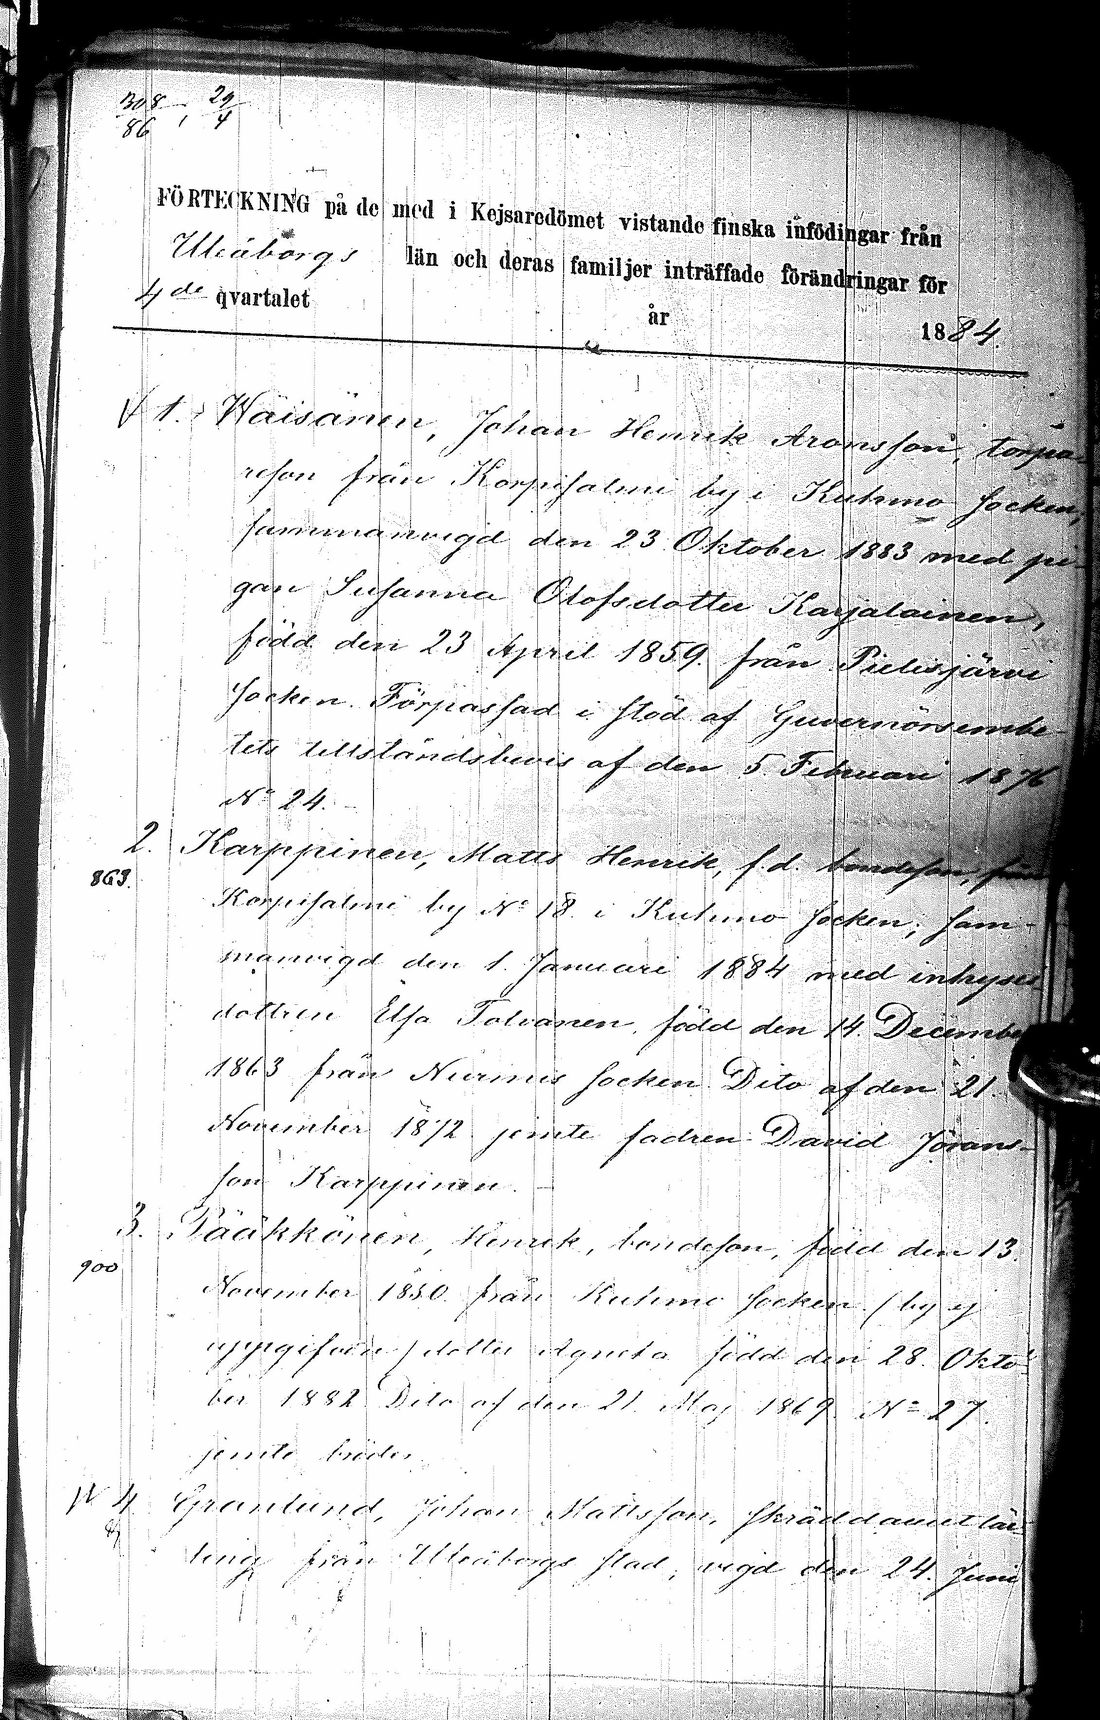 308/86, 29/4
FÖRTECKNING på de med i Kejsaredömet vistande finska infödingar från
Uleåborgs län och deras familjer inträffade förändringar för
4de qvartalet år 1884.
1. Wäisänen, Johan Henrik Aronsson, torpa-
reson från Korpisalmi by i Kuhmo socken,
sammanvigd den 23 Oktober 1883 med pi-
gan Susanna Olofsdotter Karjalainen,
född den 23 April 1859. från Pielisjärvi
socken. Förpassad i stöd af Guvernörsembe-
tets tillståndsbevis af den 5 Februari 1876
No 24.
2. Karppinen, Matts Henrik, f.d. bondeson, från
863.
Korpisalmi by No 18 i Kuhmo socken; sam-
manvigd den 1. Januari 1884 med inhyses
dottren Elsa Tolvanen, född den 14 December
1863 från Nurmis socken. Dito af den 21.
November 1872 jemte fadren David Jörans-
son Karppinen.
3. Pääkkönen, Henrik, bondeson, född den 13.
900
November 1850. från Kuhmo socken (by ej
uppgifven) dotter Agneta född den 28. Okto-
ber 1882 Dito af den 21. Maj 1869. No 27.
jemte broder.
4. Granlund, Johan Mattsson, skräddarelär-
ling från Uleåborgs stad, vigd den 24. Juni